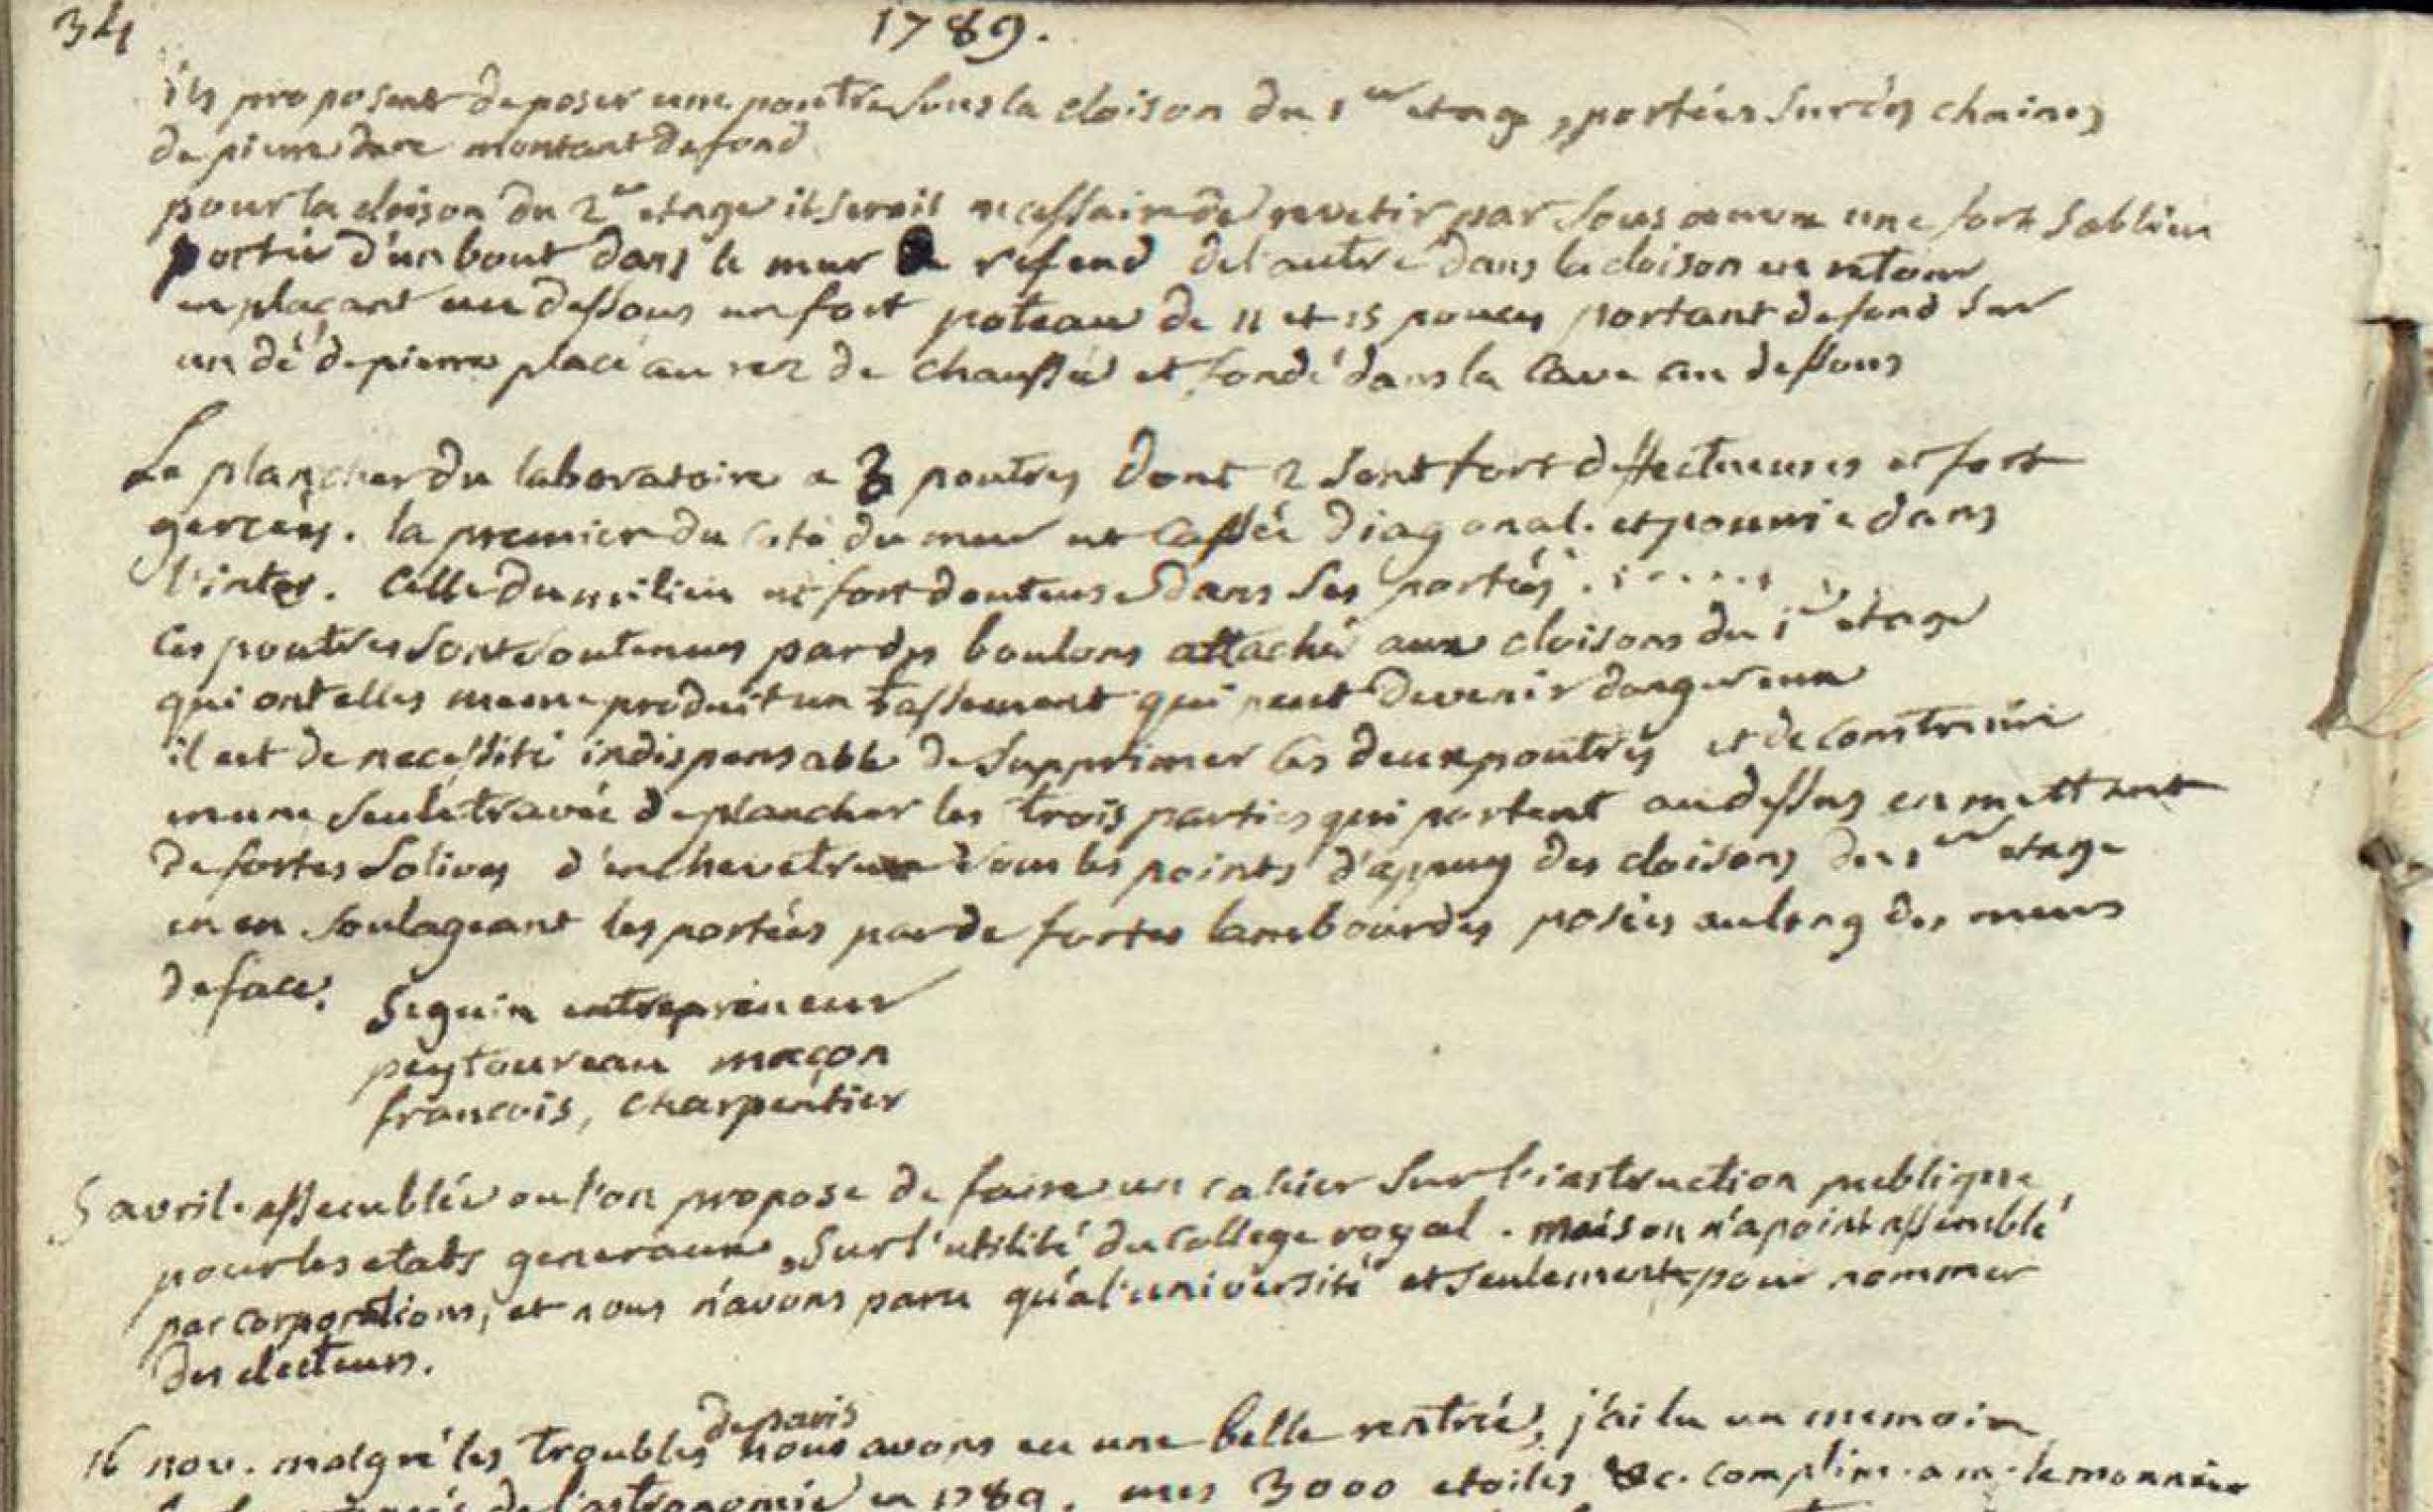 34
1789.
ils proposent de poser une poutre sous la cloison du 1er etage, portées sur des chaines
de pierre dure montant de fond
pour la cloison du 2e etage il seroit necessaire de revetir par sous oeuvre une forte sabliere
portée d'un bout dans le mur de refend de l'autre dans la cloison en retour
en plaçant au dessous un fort poteau de 11 et 15 pouces portant de fond sur
un dé de pierre placé au rez de chaussée et fondé dans la cave au dessous
Le plancher du laboratoire a 3 poutres dont 2 sont fort deffectueuses et fort
gercées. la premier du coté du mur est cassée diagonal. et pourrie dans
l'inter. celle du milieu est fort douteuse dans ses portées. . . . . . .
Ces poutres sont soutenues par des boulons attaché aux cloisons du 1er etage
qui ont elles meme produit un tassement qui peut devenir dangereux
il est de necessité indispensable de supprimer les deux poutres et de construire
en une seule travée de plancher les trois parties qui portent au dessus en mettant
de fortes solives d'enchevetrure sous les points d'appuy des cloisons du 1er etage
en en soulageant les portées par de fortes lambourdes posées au long des murs
de face.
Seguin entrepreneur
peytoureau maçon
francois, charpentier
5 avril. assemblée ou l'on propose de faire un cahier sur l'instruction publique
pour les etats generaux, sur l'utilité du college royal. mais on n'a point assemblé
par corporations, et nous n'avons paru qu'a l'université et seulement pour nommer
des electeurs.
de paris
16 nov. malgré les troubles nous avons eu une belle rentrée, j'ai lu un memoire
de l'astronomie en 1789. mes 3000 etoiles &c. complim. a m. lemonnier